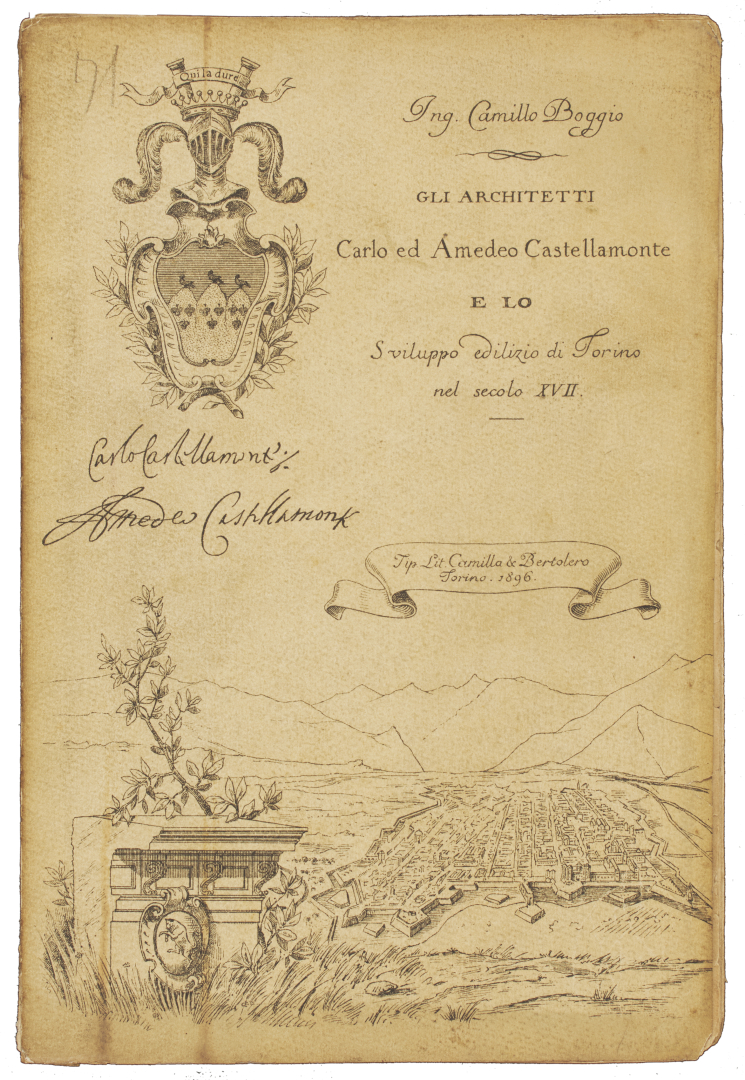 171
Qui la dure
Ing. Camillo Boggio
GLI ARCHITETTI
Carlo ed Amedeo Castellamonte
E LO
Sviluppo edilizio di Torino
nel secolo XVII.
Carlo Castellamonte
Amedeo Castellamonte
Tip. Lit. Camilla & Bertolero
Torino. 1896.